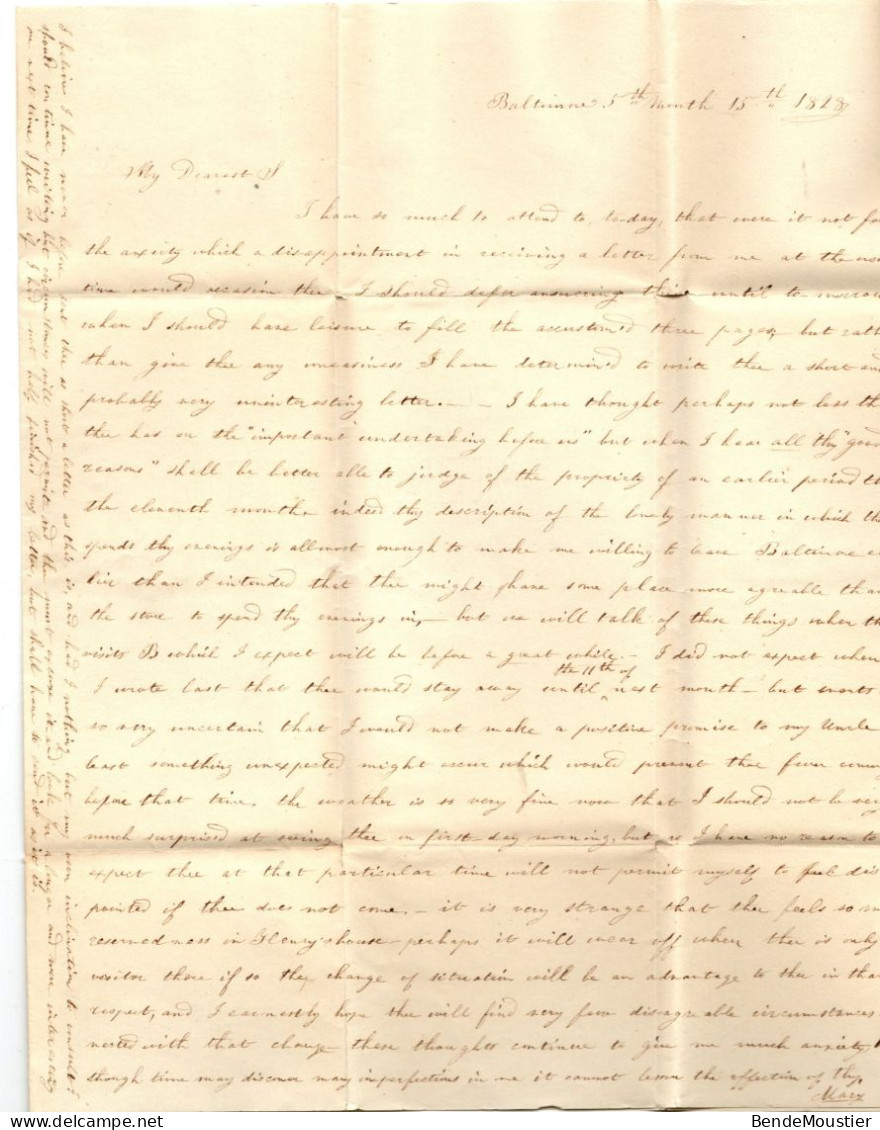 Baltimore 5th Month 15th 1828
My Dearest S
I have so much to attend to, to-day, that were it not for
the anxiety which a disappointment in receiving a letter from me at the usu
time would occasion thee I should defer answering thine until to-morrow
when I should have leisure to fill the accustom'd three pages, but rath
than give thee any uneasiness I have determin'd to write thee a short and
probably very uninteresting letter. — I have thought perhaps not less tha
thee has on the "important undertaking before us" but when I hear all thy "good
reasons" shall be better able to judge of the propriety of an earlier period th
the eleventh month indeed thy description of the lonely manner in which tho
spends thy evenings is allmost enough to make me willing to leave Baltimore ea
lier than I intended that thee might have some place more agreable than
the store to spend thy evenings in, — but we will talk of these things when th
visits B which I expect will be before a great while. — I did not expect when
I wrote last that thee would stay away until the 11th of next month — but events
so very uncertain that I would not make a positive promise to my Uncle
least something unexpected might occur which would prevent thee from coming
before that time. the weather is so very fine now that I should not be very
much surprised at seeing thee on first-day morning, but as I have no reason to
expect thee at that particular time will not permit myself to feel dis
pointed if thee does not come. — it is very strange that thee feels so m
reservedness in Henry's house — perhaps it will wear off when thee is only
visitor there if so the change of situation will be an advantage to thee in that
respect, and I earnestly hope thee will find very few disagreable circumstances
nected with that change these thoughts continue to give me much anxiety
though time may discover many imperfections in me it cannot lessen the affection of thy
Mary
I believe I have never before sent thee as short a letter as this is, and had I nothing but my own inclination to consult I
should continue writing but circumstances will not permit and thee must excuse it and look for a longer and more interesting
one next time I feel as if I had not half finished my letter, but shall have to send it as it is.
BendeMoustier